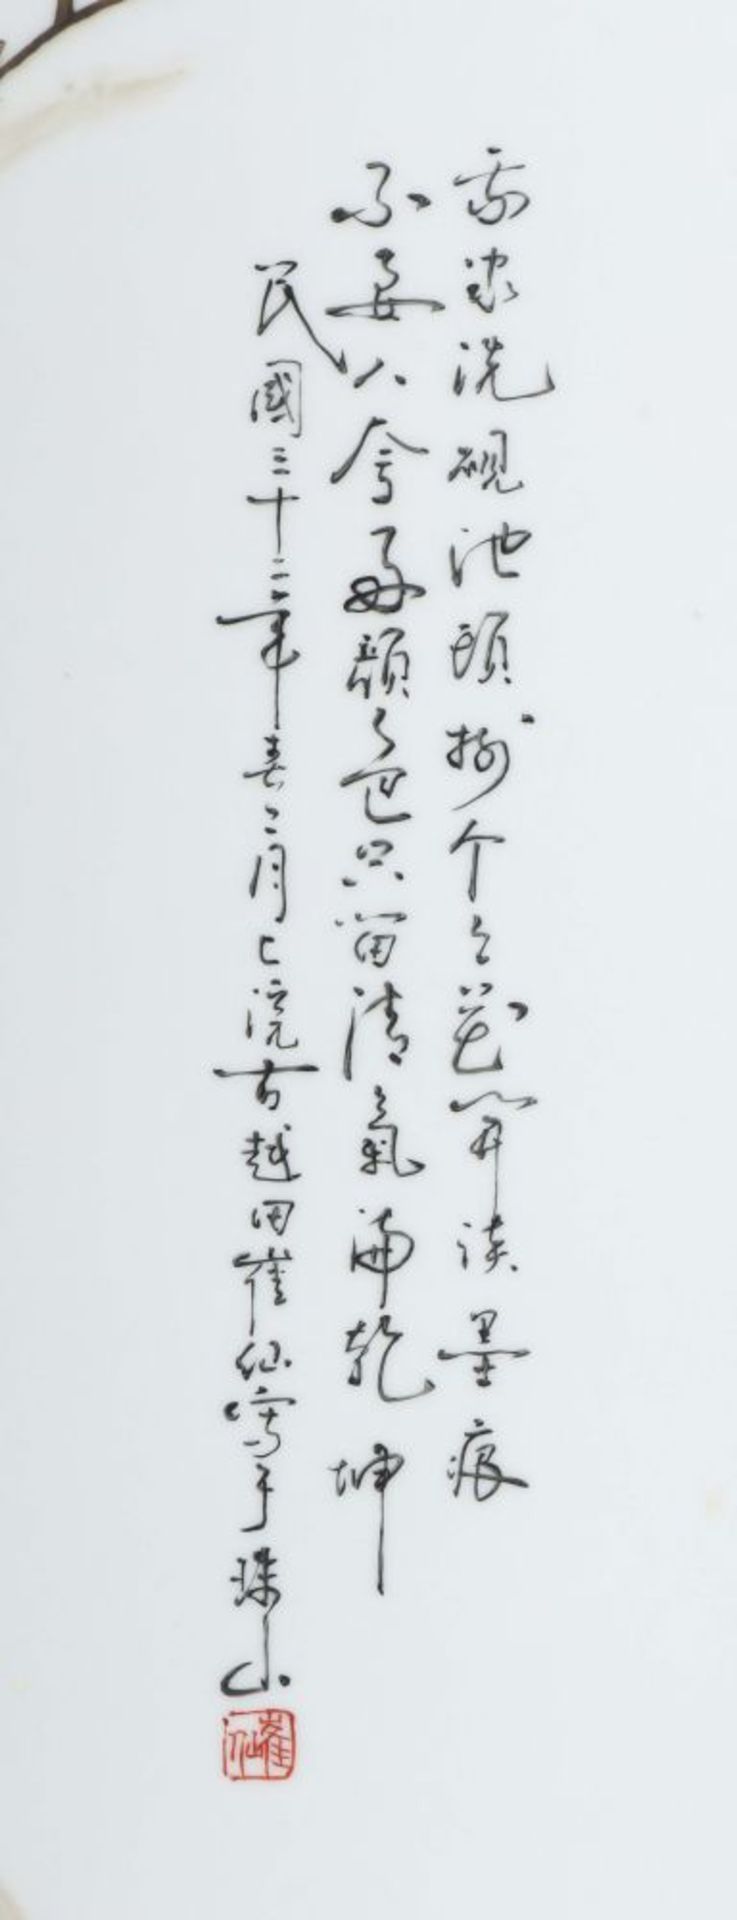 我家洗硯池頭樹个々花開淡墨痕
不要人夸好顏色只留清氣滿乾坤
民國三十二年春二月上浣古越田崔仙寫于珠山
崔仙